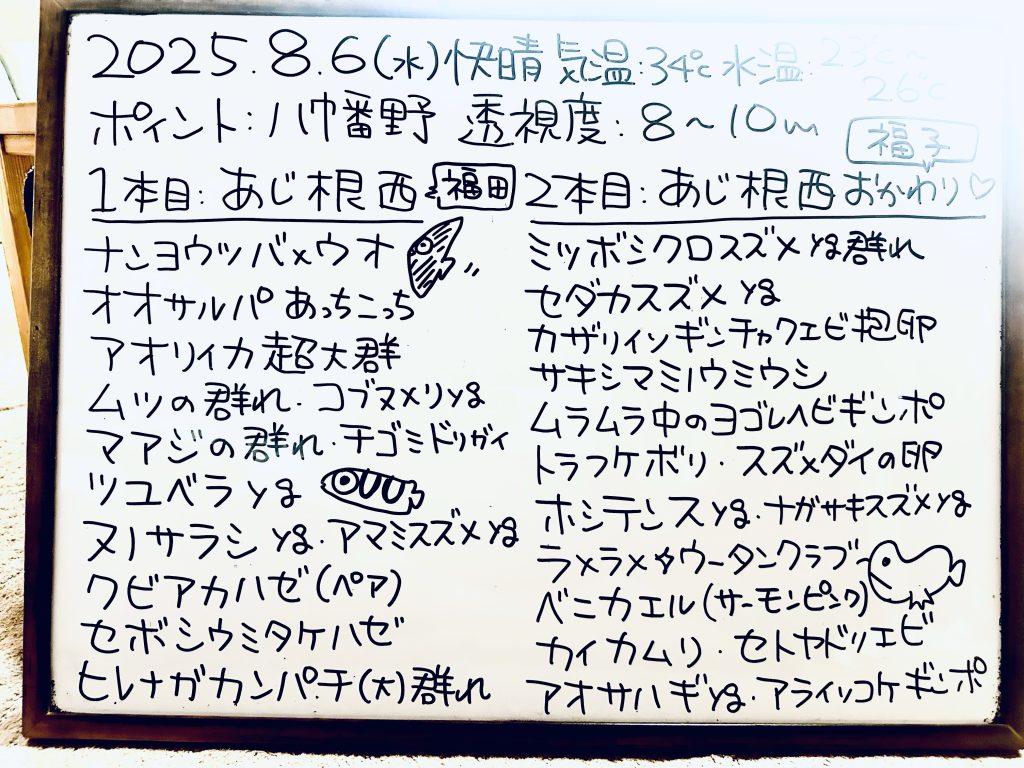 2025.8.6(水)快晴 気温:34℃ 水温:23℃~26℃
ポイント:八幡野 透視度:8~10m
1本目:あじ根西 福田
ナンヨウツバメウオ
オオサルパ あっちこっち
アオリイカ超大群
ムツの群れ・コブヌメリyg
マアジの群れ・チゴミドリガイ
ツユベラyg
ヌノサラシyg・アマミスズメyg
クビアカハゼ(ペア)
セボシウミタケハゼ
ヒレナガカンパチ(大)群れ
福子
2本目:あじ根西おかわり♡
ミツボシクロスズメyg群れ
セダカスズメyg
カザリイソギンチャクエビ抱卵
サキシマミノウミウシ
ムラムラ中のヨゴレヘビギンポ
トラフケボリ・スズメダイの卵
ホシテンスyg・ナガサキスズメyg
ラメラメ✧ウータンクラブ
ベニカエル(サーモンピンク)
カイカムリ・セトヤドリエビ
アオサハギyg・アライソコケギンポ